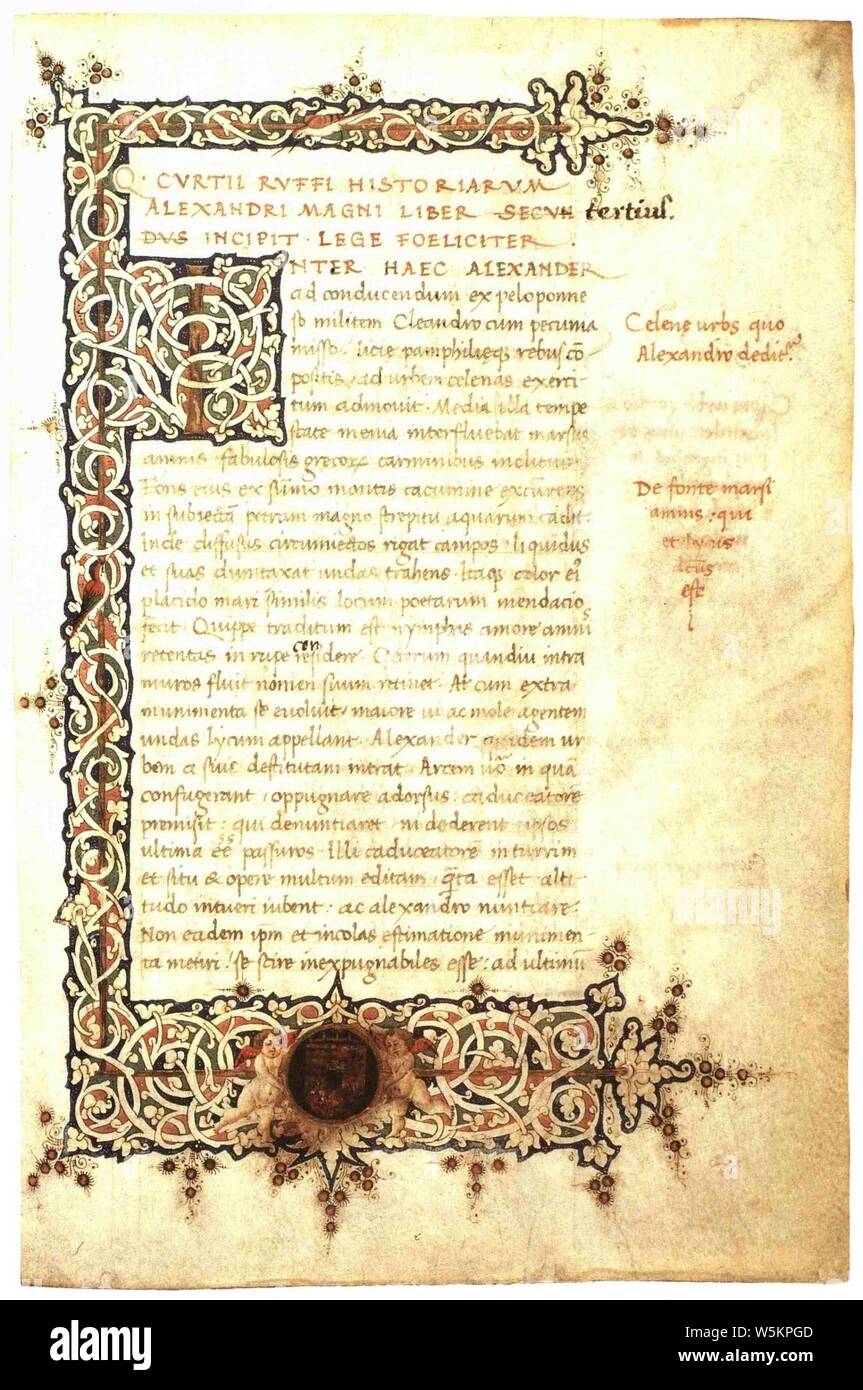 Q · CVRTII RVFFI HISTORIARVM
ALEXANDRI MAGNI LIBER SECVN tertius.
DVS INCIPIT · LEGE FOELICITER ·
INTER HAEC ALEXANDER
ad conducendum ex peloponne
so militem Cleandro cum pecunia
misso · licie pamphilięqꝫ rebus cō
positis · ad urbem celenas exerci
tum admovit · Media illa tempe
state menia interfluebat marsias
amnis · fabulosis grecoꝝ carminibus inclitus
Fons eius ex sūmo montis cacumine excurrens
in subiectā petram magno strepitu aquarum cadit ·
Inde diffusus circumiectos rigat campos · liquidus
et suas dumtaxat undas trahens · Itaqꝫ color eiꝰ
placido mari similis locum poetarum mendacio
fecit · Quippe traditum est nymphas amore amnis
retentas in rupe residere · Ceterum quandiu intra
con
muros fluit nomen suum retinet · At cum extra
munimenta se evoluit · maiore ui ac mole agentem
undas Lycum appellant · Alexander quidem ur
bem a suis destitutam intrat · Arcem uºo in quā
confugerant · oppugnare adorsus · caduceatorē
premisit : qui denuntiaret ni dederent ipsos
ultima eē passuros · Illi caduceatorē in turrim
et situ & opere multum editam · qᷓta esset alti
tudo intueri iubent · ac alexandro nuntiare ·
Non eadem ipm et incolas estimatione munimen
ta metiri · se scire inexpugnabiles esse : ad ultimū
Celenę urbs quo
Alexandro dedit
De fonte marsi
amnis · qui
et lycus
est
alamy
a
alamy
Image ID: W5KPGD
www.alamy.com